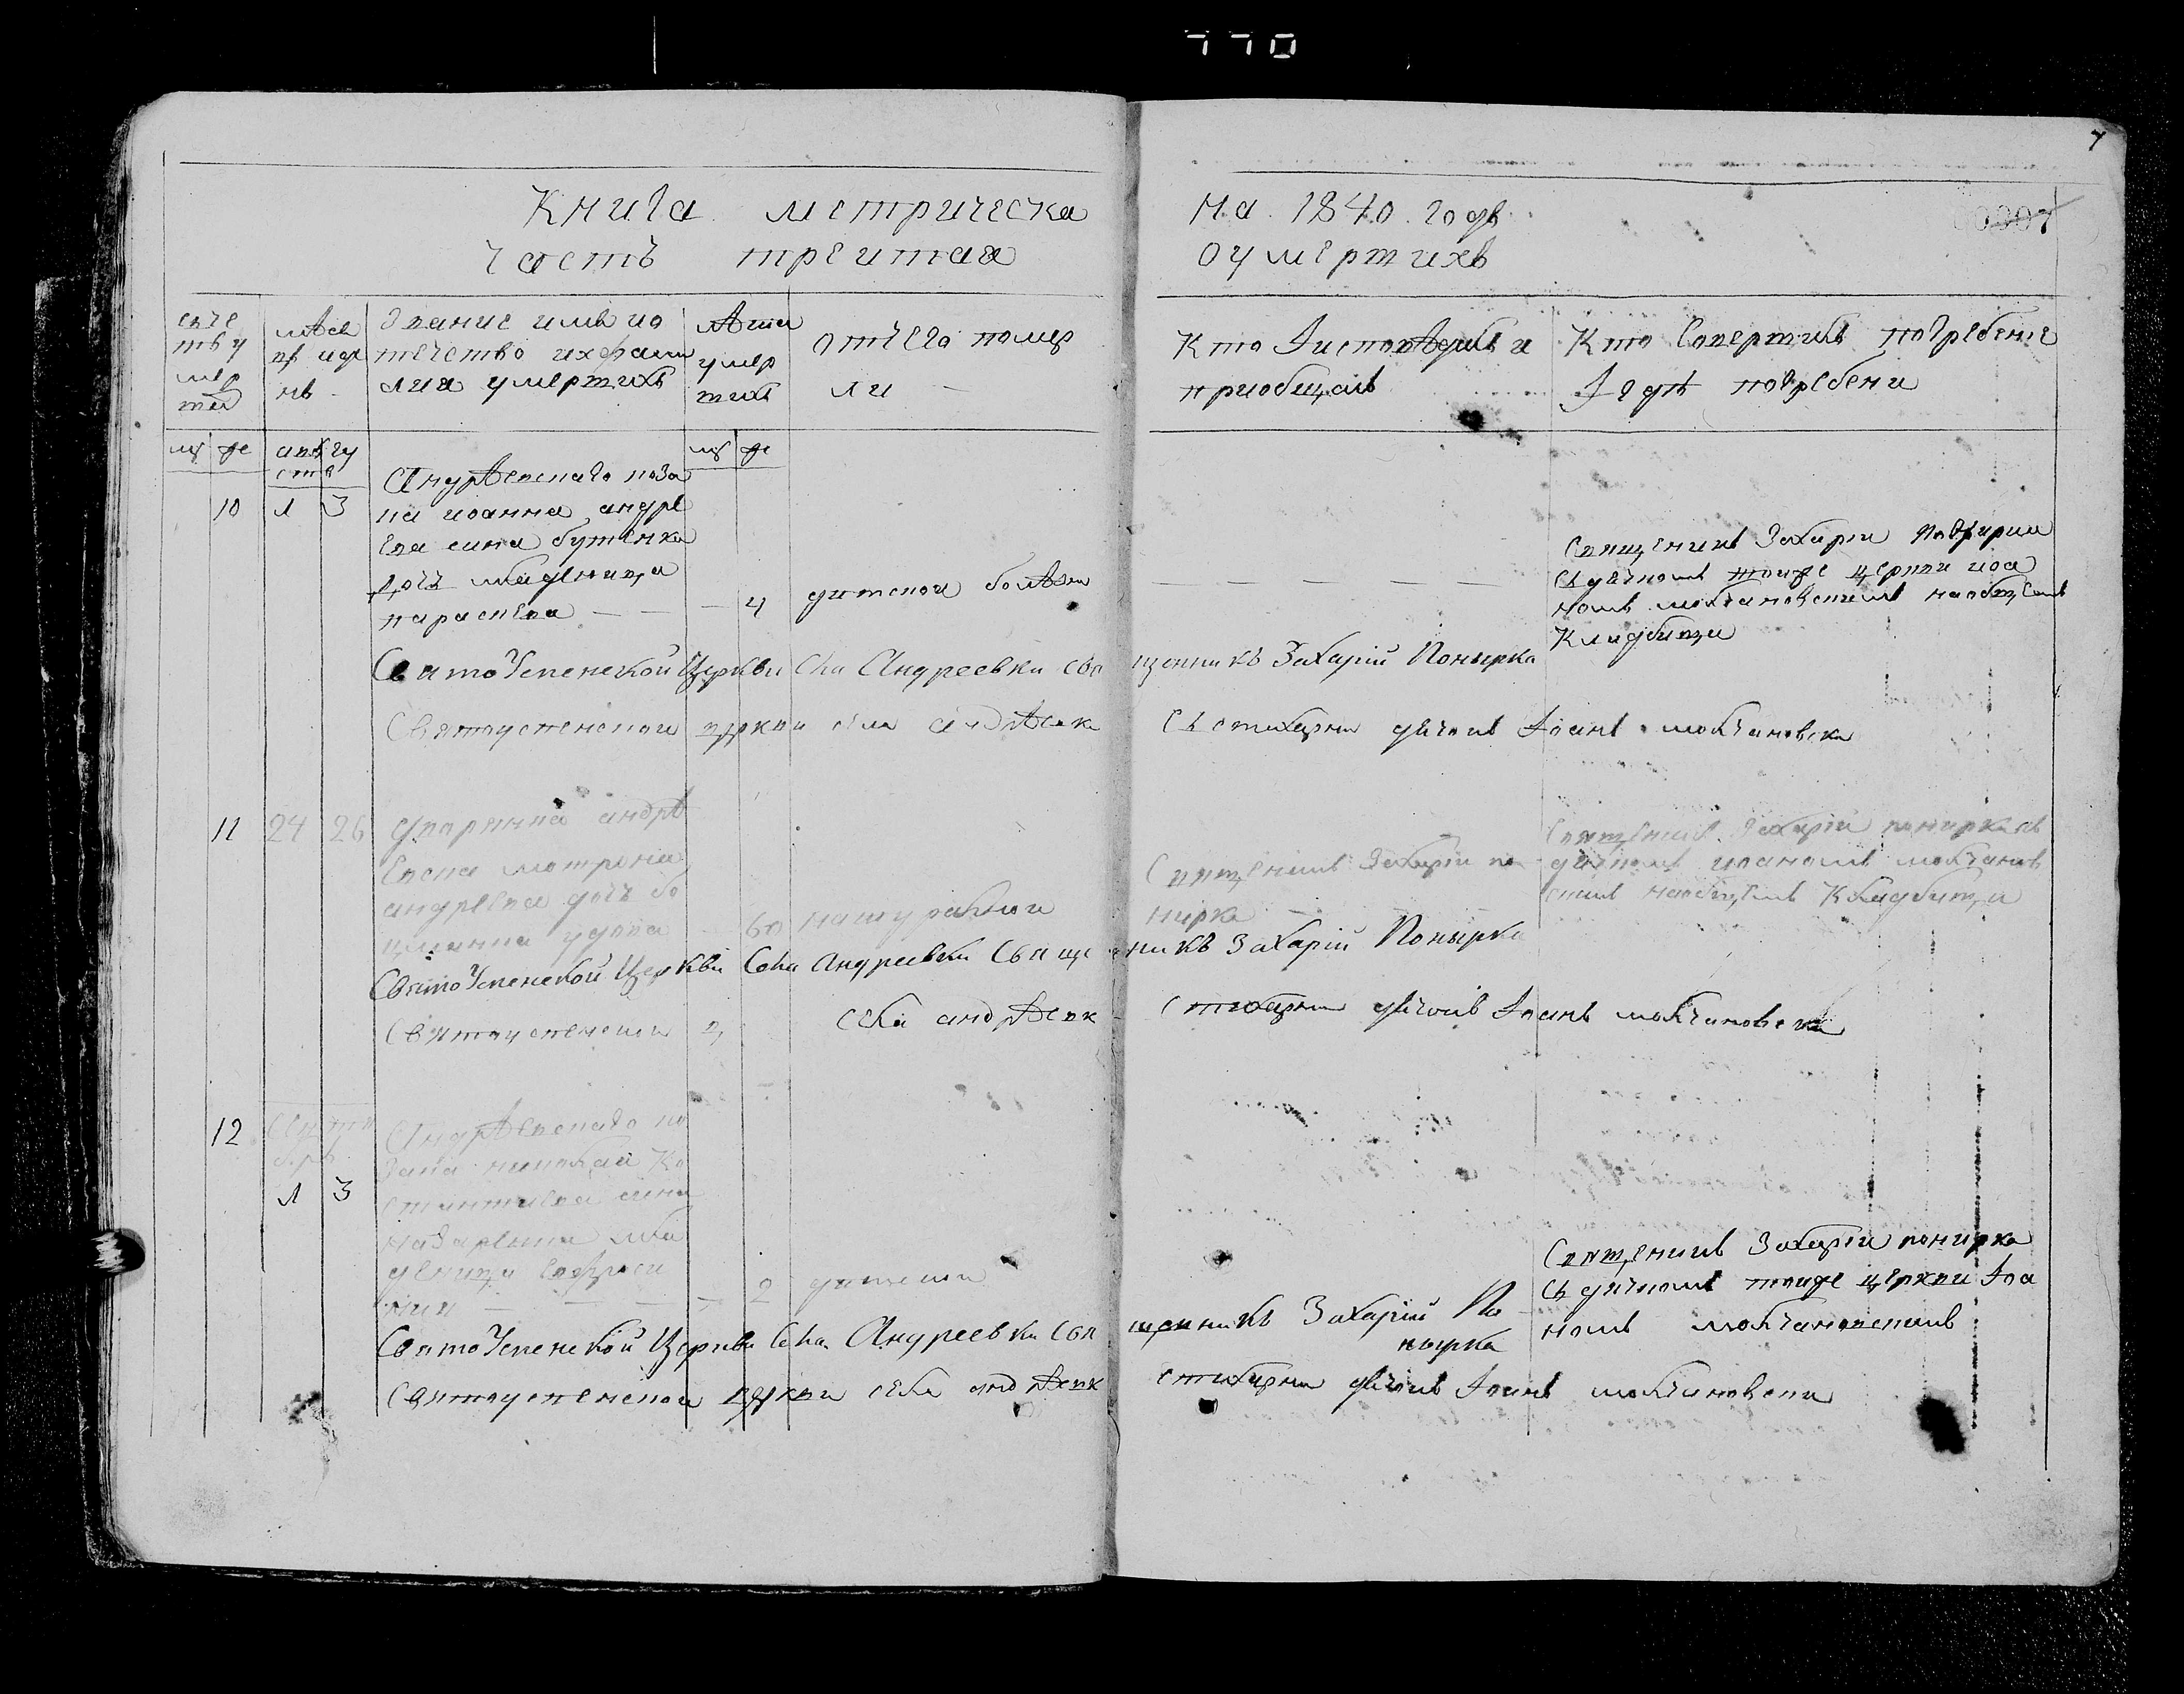 770
7
Книга метрическа
часть третая
На 1840 годъ
О умертихъ
счс
тв у
мер
тей
мѣся
цъ и дх
нъ
Звание имя ио
течество и хфами
лия умертихъ
лѣта
умер
тихъ
отчего помер
ли
Кто Исповѣдивъ и
приобщалъ
Кто Совертивъ погребение
И гдѣ погребени
мү же
авгу
ста
мү же
10 1 3
Андрѣевскаго коза
ка иоанна андре
ева сина бутенка
дочъ младеница
параскева — — — 4 дитской болѣзни
Священикъ Захарии
съ дячкомъ тоиже церкви иоа
номъ молчановскимъ наобщемъ
Кладбищи
СвятоУспенской Церкви Села Андреевки Свя щенникъ Захарій Понырка
Святоуспенской церкви села андрѣевк Стихарни дячокъ Иоанъ молчановски
11 24 26
дворянка андрѣ
евска мотрона
андреева дочъ бо
вдова 60
Священикъ Захарии по
нирка
Священикъ Захарии понирка съ
дячкомъ иоаномъ молчанов
скимъ наобщемъ Кладбищи
СвятоУспенской Церкви Села Андреевки Священикъ Захарій Понырка
Святоуспенской ц села андрѣевк Стихарни дячокъ Иоанъ молчановски
12 1 3
Андрѣевскаго ко
зака николай Ко
стантиева сина
назаренка мла
деница Ефроси
ния — — — — 2 дитской
Священикъ Захарии понирка
съ дячкомъ тоиже церкви Иоа
номъ молчановскимъ
СвятоУспенской Церкви Села Андреевки Свя щенникъ Захарій По
нырка
Святоуспенской церкви села андрѣевк стихарни дячокъ Иоанъ молчановски